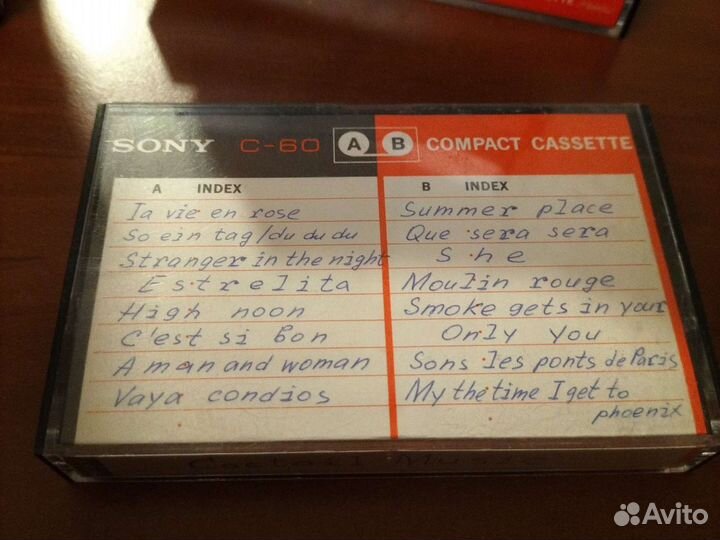 SONY C-60 A B COMPACT CASSETTE
A INDEX
Ia vie en rose
So ein tag/du du du
Stranger in the night
Estrelita
High noon
C'est si bon
A man and woman
Vaya condios
B INDEX
Summer place
Que sera sera
She
Moulin rouge
Smoke gets in your
Only you
Sons les ponts de Paris
My the time I get to
phoenix
Avito